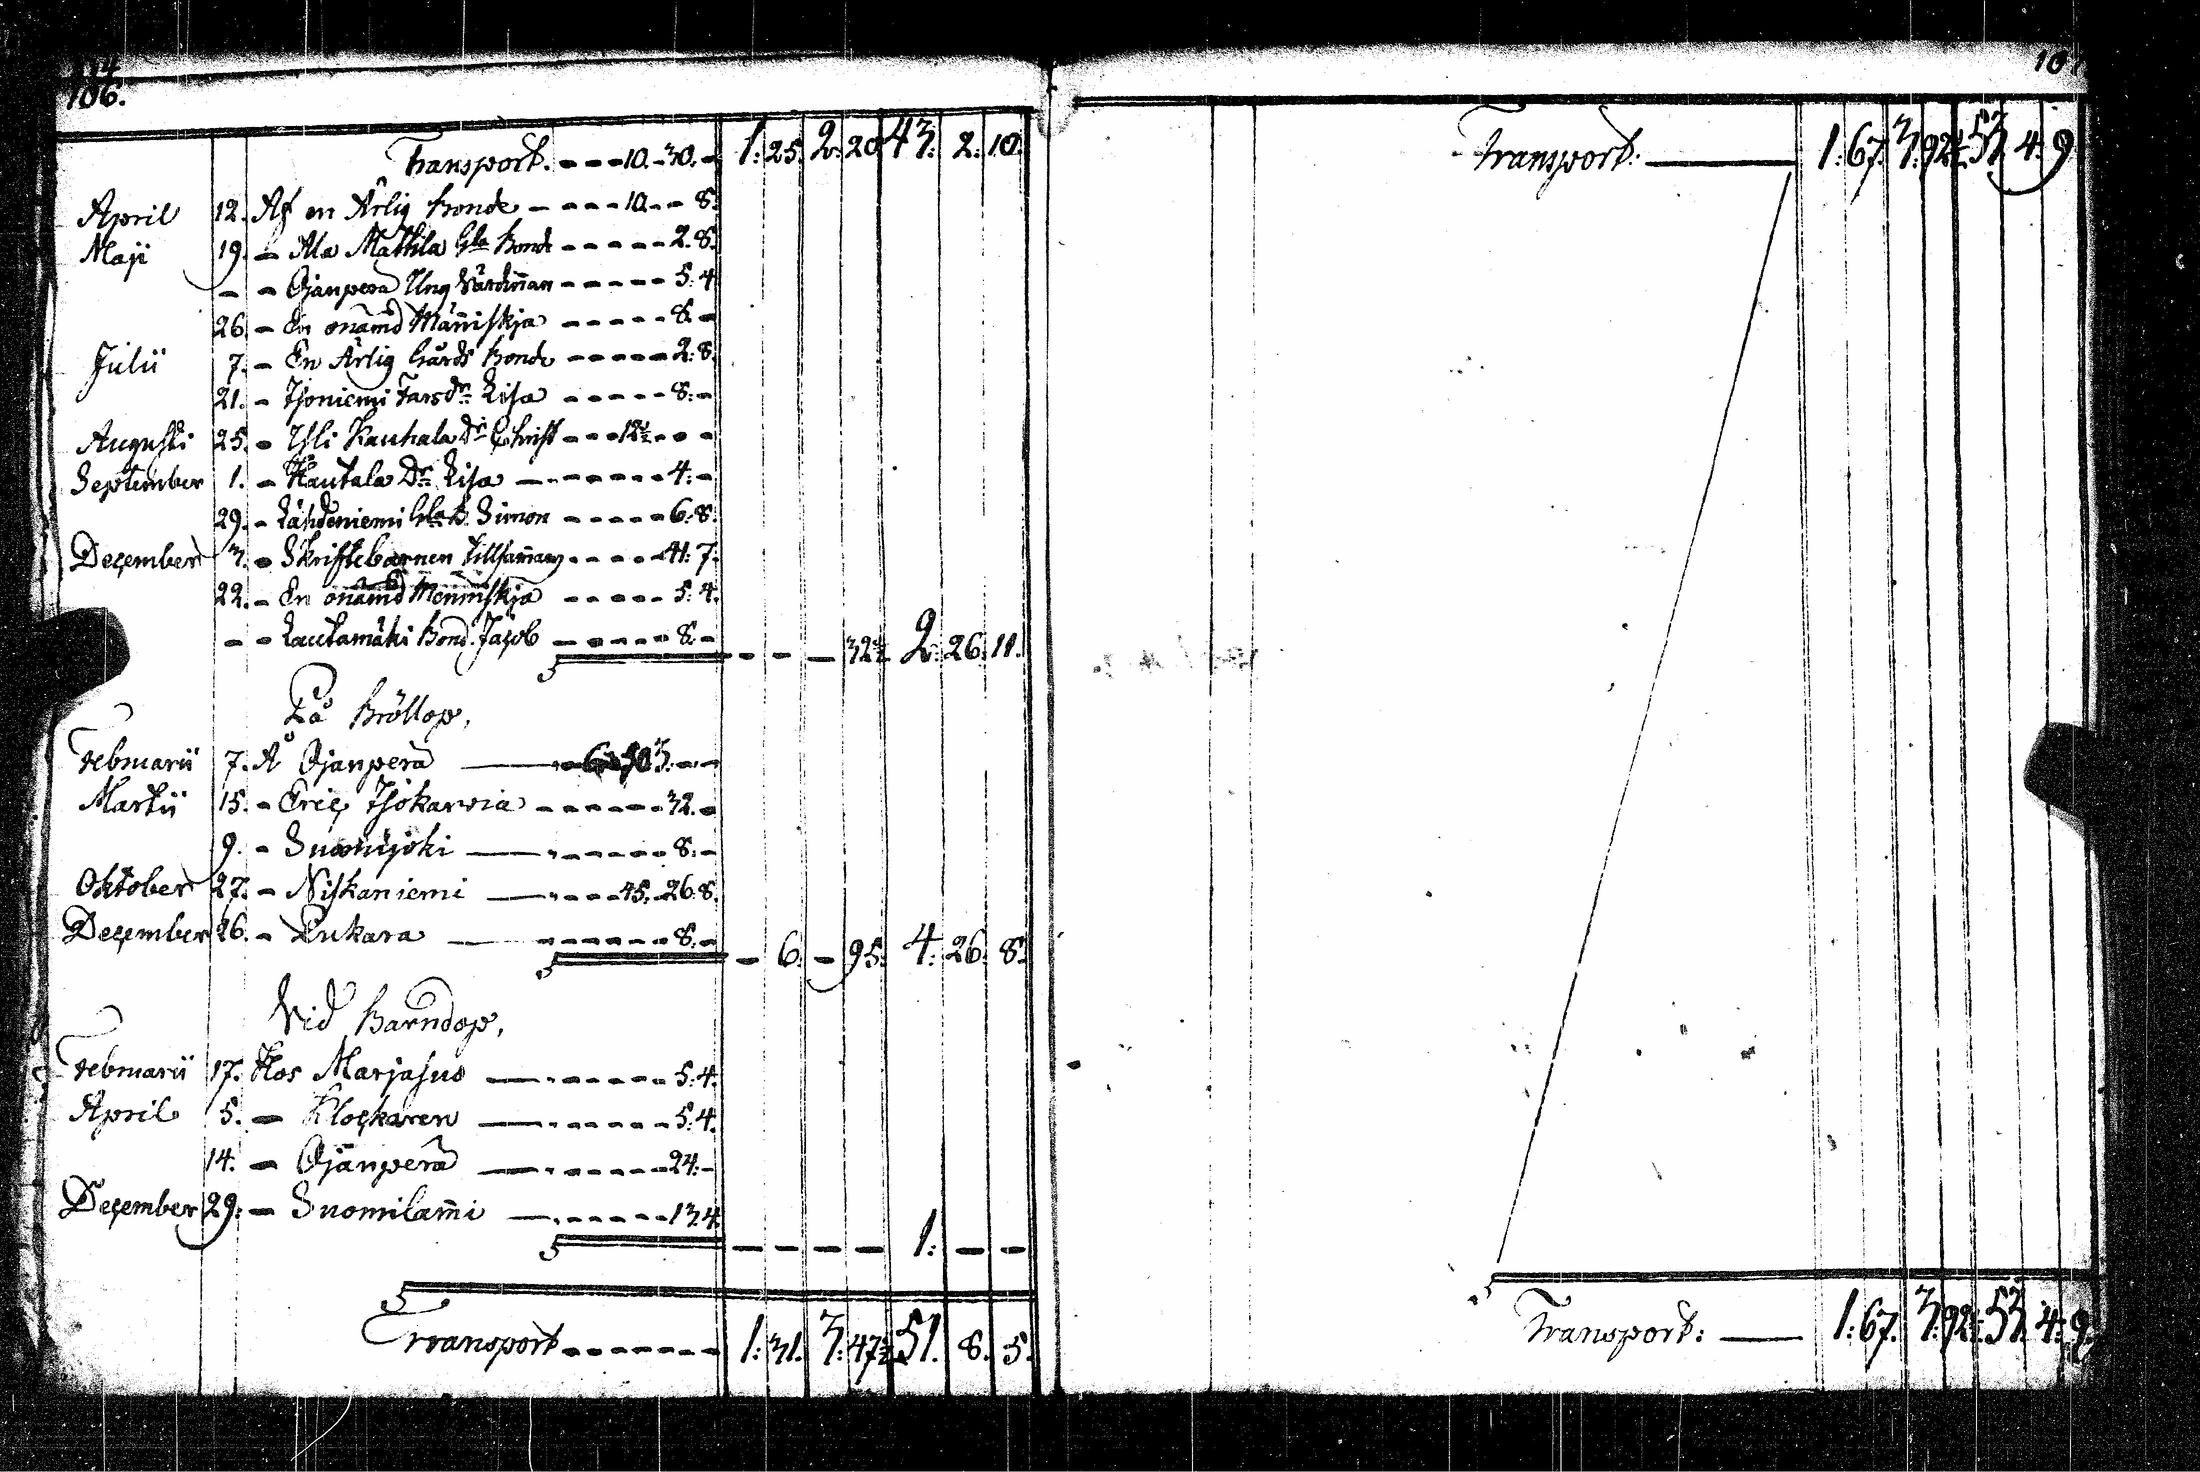 106.
Transport. - - - 10. 30. - 1: 25. 2: 20 43: 2: 10.
April 12. Af en Ärlig Bonde - - - - 10. - - 8.
Maji 19. - Ala Mattila Gla Bonde - - - - - 2. 8.
- - Ojanperä Ung Värdinan - - - - - 5: 4
26. - En onämd Människja - - - - - 8. -
Julii 7. - En Ärlig Gårds Bonde - - - - - 2: 8.
21. - Isoniemi Fars Dr Lisa - - - - - 8: -
Augusti 25. - Yli Kauhala Dr Christ - - - 12½ - - -
September 1. - Hautala Dr Lisa - - - - - - 4: -
29. - Lähdeniemi Gla B. Simon - - - - - 6: 8.
December 3. - Skriftebarnen tillsamans - - - - 41: 7.
22. - En onämd Menniskja - - - - - 5: 4.
- - Lautamäki Bond. Jacob - - - - - 8: -
- - - 32½ 2: 26. 11.
På Bröllop,
Februarii 7. Å Ojanperä - 50 3. - -
Martii 15. - Eric Isokarvia - - - - - - 32. -
9. - Suomijoki - - - - - - 8: -
Oktober 27. - Niskaniemi - - - - 45. - 26: 8.
December 26. - Pukara - - - - - - 8: -
- 6. - 95. 4: 26. 8.
Vid Barndop,
Februarii 17. Hos Marjasuo - - - - - - 5: 4.
April 5. - Klockaren - - - - - - 5: 4.
14. - Ojanperä - - - - - - 24: -
December 29. - Suomilammi - - - - - - 13. 4
- - - - 1: - -
Transport - - - - - - - 1: 31. 3: 47½ 51. 8. 5.
10
Transport: 1: 67. 3: 92½ 53. 4: 9
Transport: 1: 67. 3: 92½ 53. 4: 9.